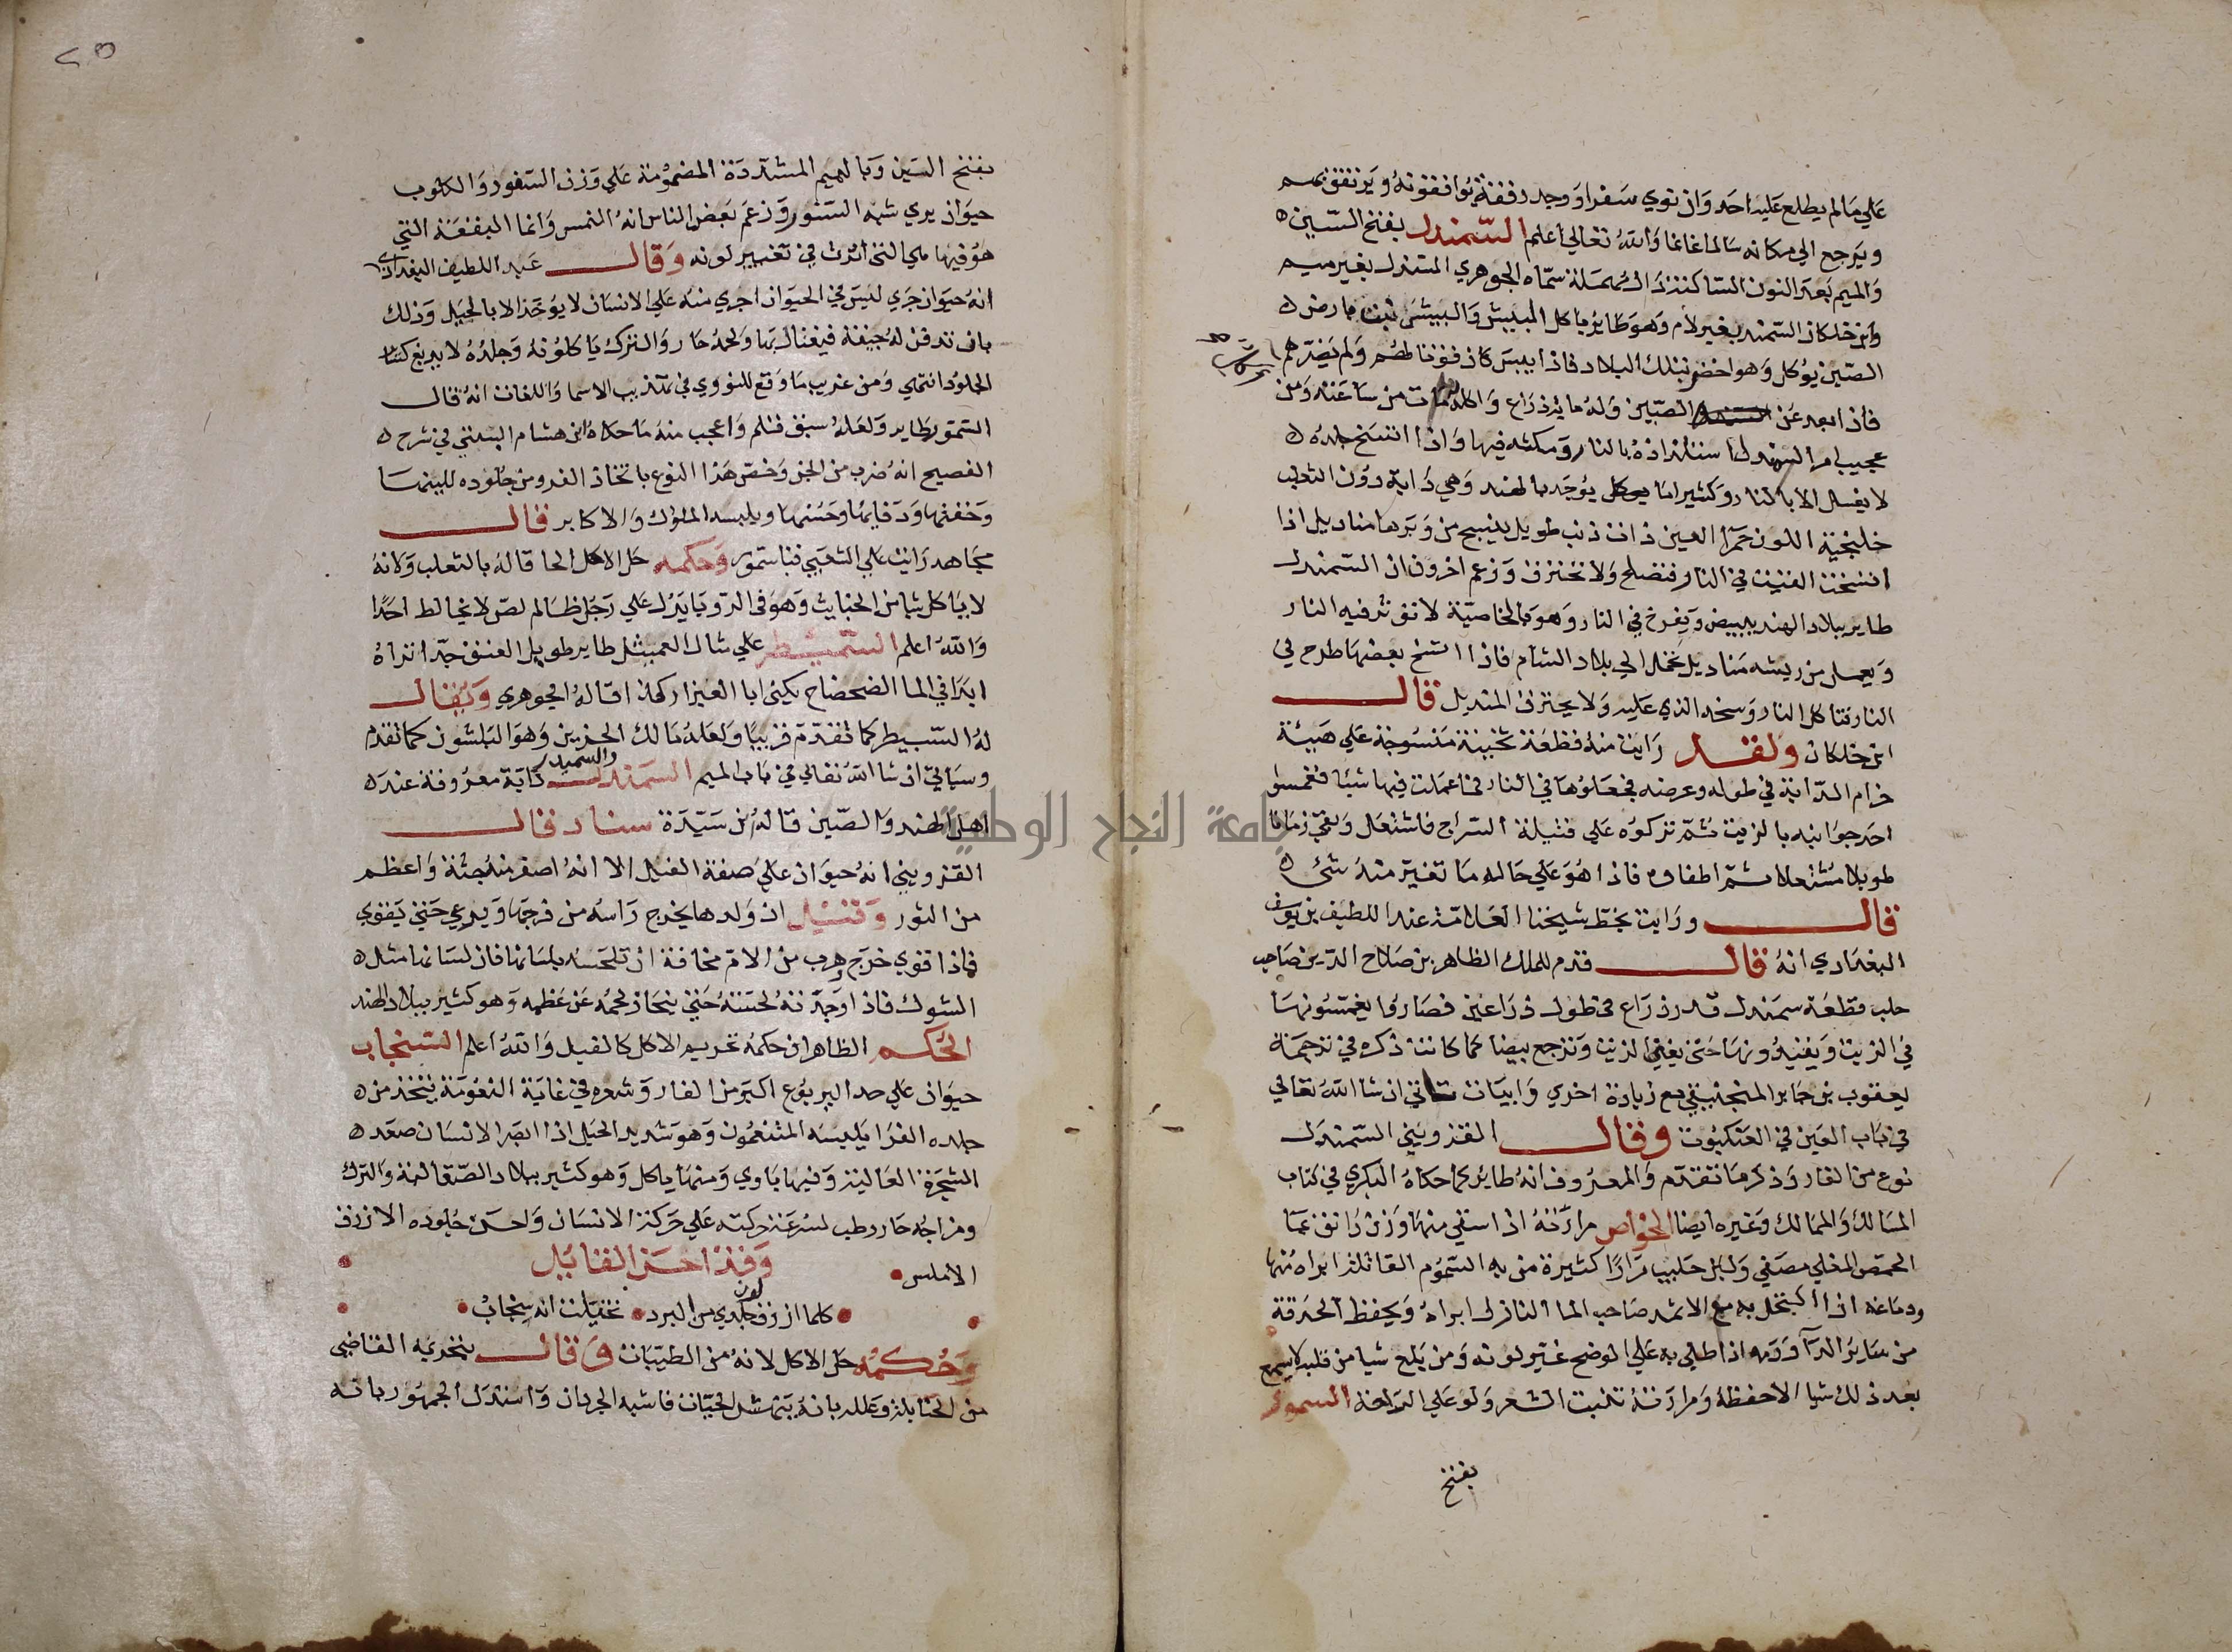 علي مالم يطلع عليه احد وان نوي سفرا او وجد رفقة يوافقونه ويرتفق بهم
ويرجع الي مكانه سالما غانما والله تعالي اعلم السمندل بفتح السين
والميم بعد النون الساكنة دال مهملة سماه الجوهري السندل بغير ميم
وابن خلكان السمند بغير لام وهو طاير ياكل البيش والبيش نبت بارض
الصين يوكل وهو اخضر بتلك البلاد فاذا يبس كان قوتا لهم ولم يضرهم
فاذا ابعد عن الصين ولو ماية ذراع واكله مات من ساعته ومن
عجيب امر السمندل استلذاذه بالنار ومكثه فيها واذا اتسخ جلده
لا يغسل الا بالنار وكثيرا ما يوجد بالهند وهي دابة دون الثعلب
خلنجية اللون حمرا العين ذات ذنب طويل ينسج من وبرها مناديل اذا
اتسخت القيت في النار فتصلح ولا تحترق وزعم اخرون ان السمندل
طاير ببلاد الهند يبيض ويفرخ في النار وهو بالخاصية لا تؤثر فيه النار
ويعمل من ريشه مناديل تحمل الي بلاد الشام فاذا اتسخ بعضها طرح في
النار فتاكل النار وسخه الذي عليه ولا يحترق المنديل قال
ابن خلكان ولقد رايت منه قطعة ثخينة منسوجة علي هيئة
حزام الدابة في طوله وعرضه فجعلوها في النار فما عملت فيها شيا فغمسوا
احد جوانبه بالزيت ثم تركوه علي فتيلة السراج فاشتعل وبقي زمانا
طويلا مشتعلا ثم اطفاوه فاذا هو علي حاله ما تغير منه شئ
قال ورايت بخط شيخنا العلامة عبد اللطيف بن يوسف
البغدادي انه قال قدم للملك الظاهر بن صلاح الدين صاحب
حلب قطعة سمندل قدر ذراع في طول ذراعين فصاروا يغمسونها
في الزيت ويقيدونها حتى يفني الزيت وترجع بيضا كما كانت ذكره في ترجمة
يعقوب بن جابر المنجنيقي مع زيادة اخري وابيات تاتي ان شا الله تعالي
في باب العين في العنكبوت وقال القزويني السمندل
نوع من الفار وذكر ما تقدم والمعروف انه طائر كما حكاه البكري في كتاب
المسالك والممالك وغيره ايضا الخواص مرارته اذا سقي منها وزن دانق بما
الحمص المغلي مصفي ولبن حليب مرارا كثيرة من به السموم القاتلة ابراه منها
ودماغه اذا اكتحل به مع الاثمد صاحب الما النازل ابراه ويحفظ الحدقة
من سائر الدآ ودمه اذا طلي به علي الوضح غير لونه ومن بلع شيا من قلبه لا يسمع
بعد ذلك شيا الا حفظه ومرارته تنبت الشعر ولو علي الراحة السمور
بفتح
بفتح السين وبالميم المشددة المضمومة علي وزن السفود والكلوب
حيوان بري شبه السنور وزعم بعض الناس انه النمس وانما البقعة التي
هو فيها هي التي اثرت في تغيير لونه وقال عبد اللطيف البغدادي
انه حيوان جري ليس في الحيوان اجري منه علي الانسان لا يوخذ الا بالحيل وذلك
بان تدفن له جيفة فيغتال بها ولحمه حار والترك ياكلونه وجلده لا يدبغ كساير
الجلود انتهي ومن غريب ما وقع للنووي في تهذيب الاسما واللغات انه قال
السمور طاير ولعله سبق قلم واعجب منه ما حكاه ابن هشام البستي في شرح
الفصيح انه ضرب من الجن وخص هذا النوع باتخاذ الفرو من جلوده للينها
وخفتها ودفايها وحسنها ويلبسه الملوك والاكابر قال
مجاهد رايت علي الشعبي قبا سمور وحكمه حل الاكل الحاقا له بالثعلب ولانه
لا ياكل شيا من الخبايث وهو في الرويا يدل علي رجل ظالم لص لا يخالط احدا
والله اعلم السميطر علي مثال العميثل طاير طويل العنق جدا تراه
ابدا في الما الضحضاح يكني ابا العيزار كذا قاله الجوهري ويقال
له السبيطر كما تقدم قريبا ولعله مالك الحزين وهو البلشون كما تقدم
وسياتي ان شا الله تعالي في باب الميم السمندل والسميدر دابة معروفة عند
اهل الهند والصين قاله ابن سيدة سناد قال
القزويني انه حيوان علي صفة الفيل الا انه اصغر منه جثة واعظم
من الثور وقيل ان ولدها يخرج راسه من فرجها ويرعي حتى يقوي
فاذا قوي خرج وهرب من الام مخافة ان تلحسه بلسانها فان لسانها مثل
الشوك فاذا وجدته لحسته حتى ينحاز لحمه عن عظمه وهو كثير ببلاد الهند
الحكم الظاهر ان حكمه تحريم الاكل كالفيل والله اعلم السنجاب
حيوان علي حد اليربوع اكبر من الفار وشعره في غاية النعومة يتخذ من
جلده الفرا يلبسه المتنعمون وهو شديد الحيل اذا ابصر الانسان صعد
الشجرة العالية وفيها ياوي ومنها ياكل وهو كثير ببلاد الصقالبة والترك
ومزاجه حار رطب لسرعة حركته علي حركة الانسان واحسن جلوده الازرق
الاملس وقد احسن القايل
كلما ازرق لون جلدي من البرد تخيلت انه سنجاب
وحكمه حل الاكل لانه من الطيبات وقال بتحريمه القاضي
من الحنابلة وعلله بانه ينهش الحيات فاشبه الجرذان واستدل الجمهور بانه